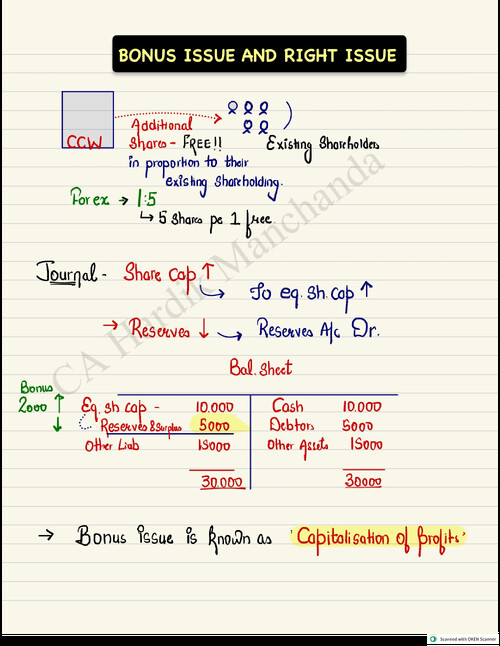 BONUS ISSUE AND RIGHT ISSUE
CCW
Additional
Shares - FREE!! Existing Shareholders
in proportion to their
existing Shareholding.
For ex → 1:5
↳ 5 Shares pe 1 free.
Journal - Share Cap ↑
↳ To eq. Sh. cap ↑
→ Reserves ↓ ↳ Reserves A/c Dr.
Bal. Sheet
Bonus
2000 ↑ Eq. Sh cap - 10.000 Cash 10.000
↓ Reserves & Surplus 5000 Debtors 5000
Other Liab 15000 Other Assets 15000
30.000 30000
→ Bonus issue is known as 'Capitalisation of Profits'
CA Hardik Manchanda
Scanned with OKEN Scanner